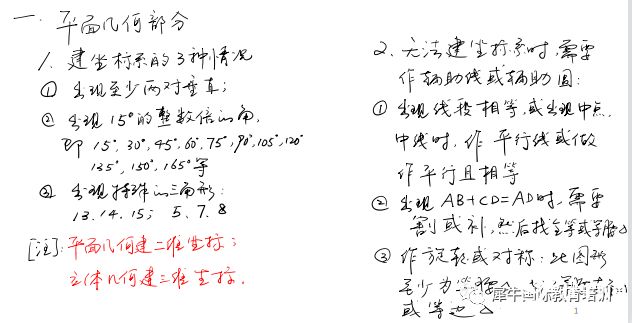 一. 平面几何部分
1. 建坐标系的3种情况
① 出现至少两对垂直;
② 出现15°的整数倍的角,
即 15°, 30°, 45°, 60°, 75°, 90°, 105°, 120°
135°, 150°, 165° 等
③ 出现特殊的三角形:
13. 14. 15; 5、7、8
[注]: 平面几何建二维坐标;
立体几何建三维坐标.
2. 无法建坐标系时, 需要
作辅助线或辅助圆:
① 出现线段相等, 或出现中点,
中线时, 作平行线或做
作平行且相等
② 出现 AB+CD=AD时, 需要
割或补, 然后找全等或等腰△
③ 作旋转或对称: 此图形
至少为等腰
或等边△
犀牛国际教育培训
1